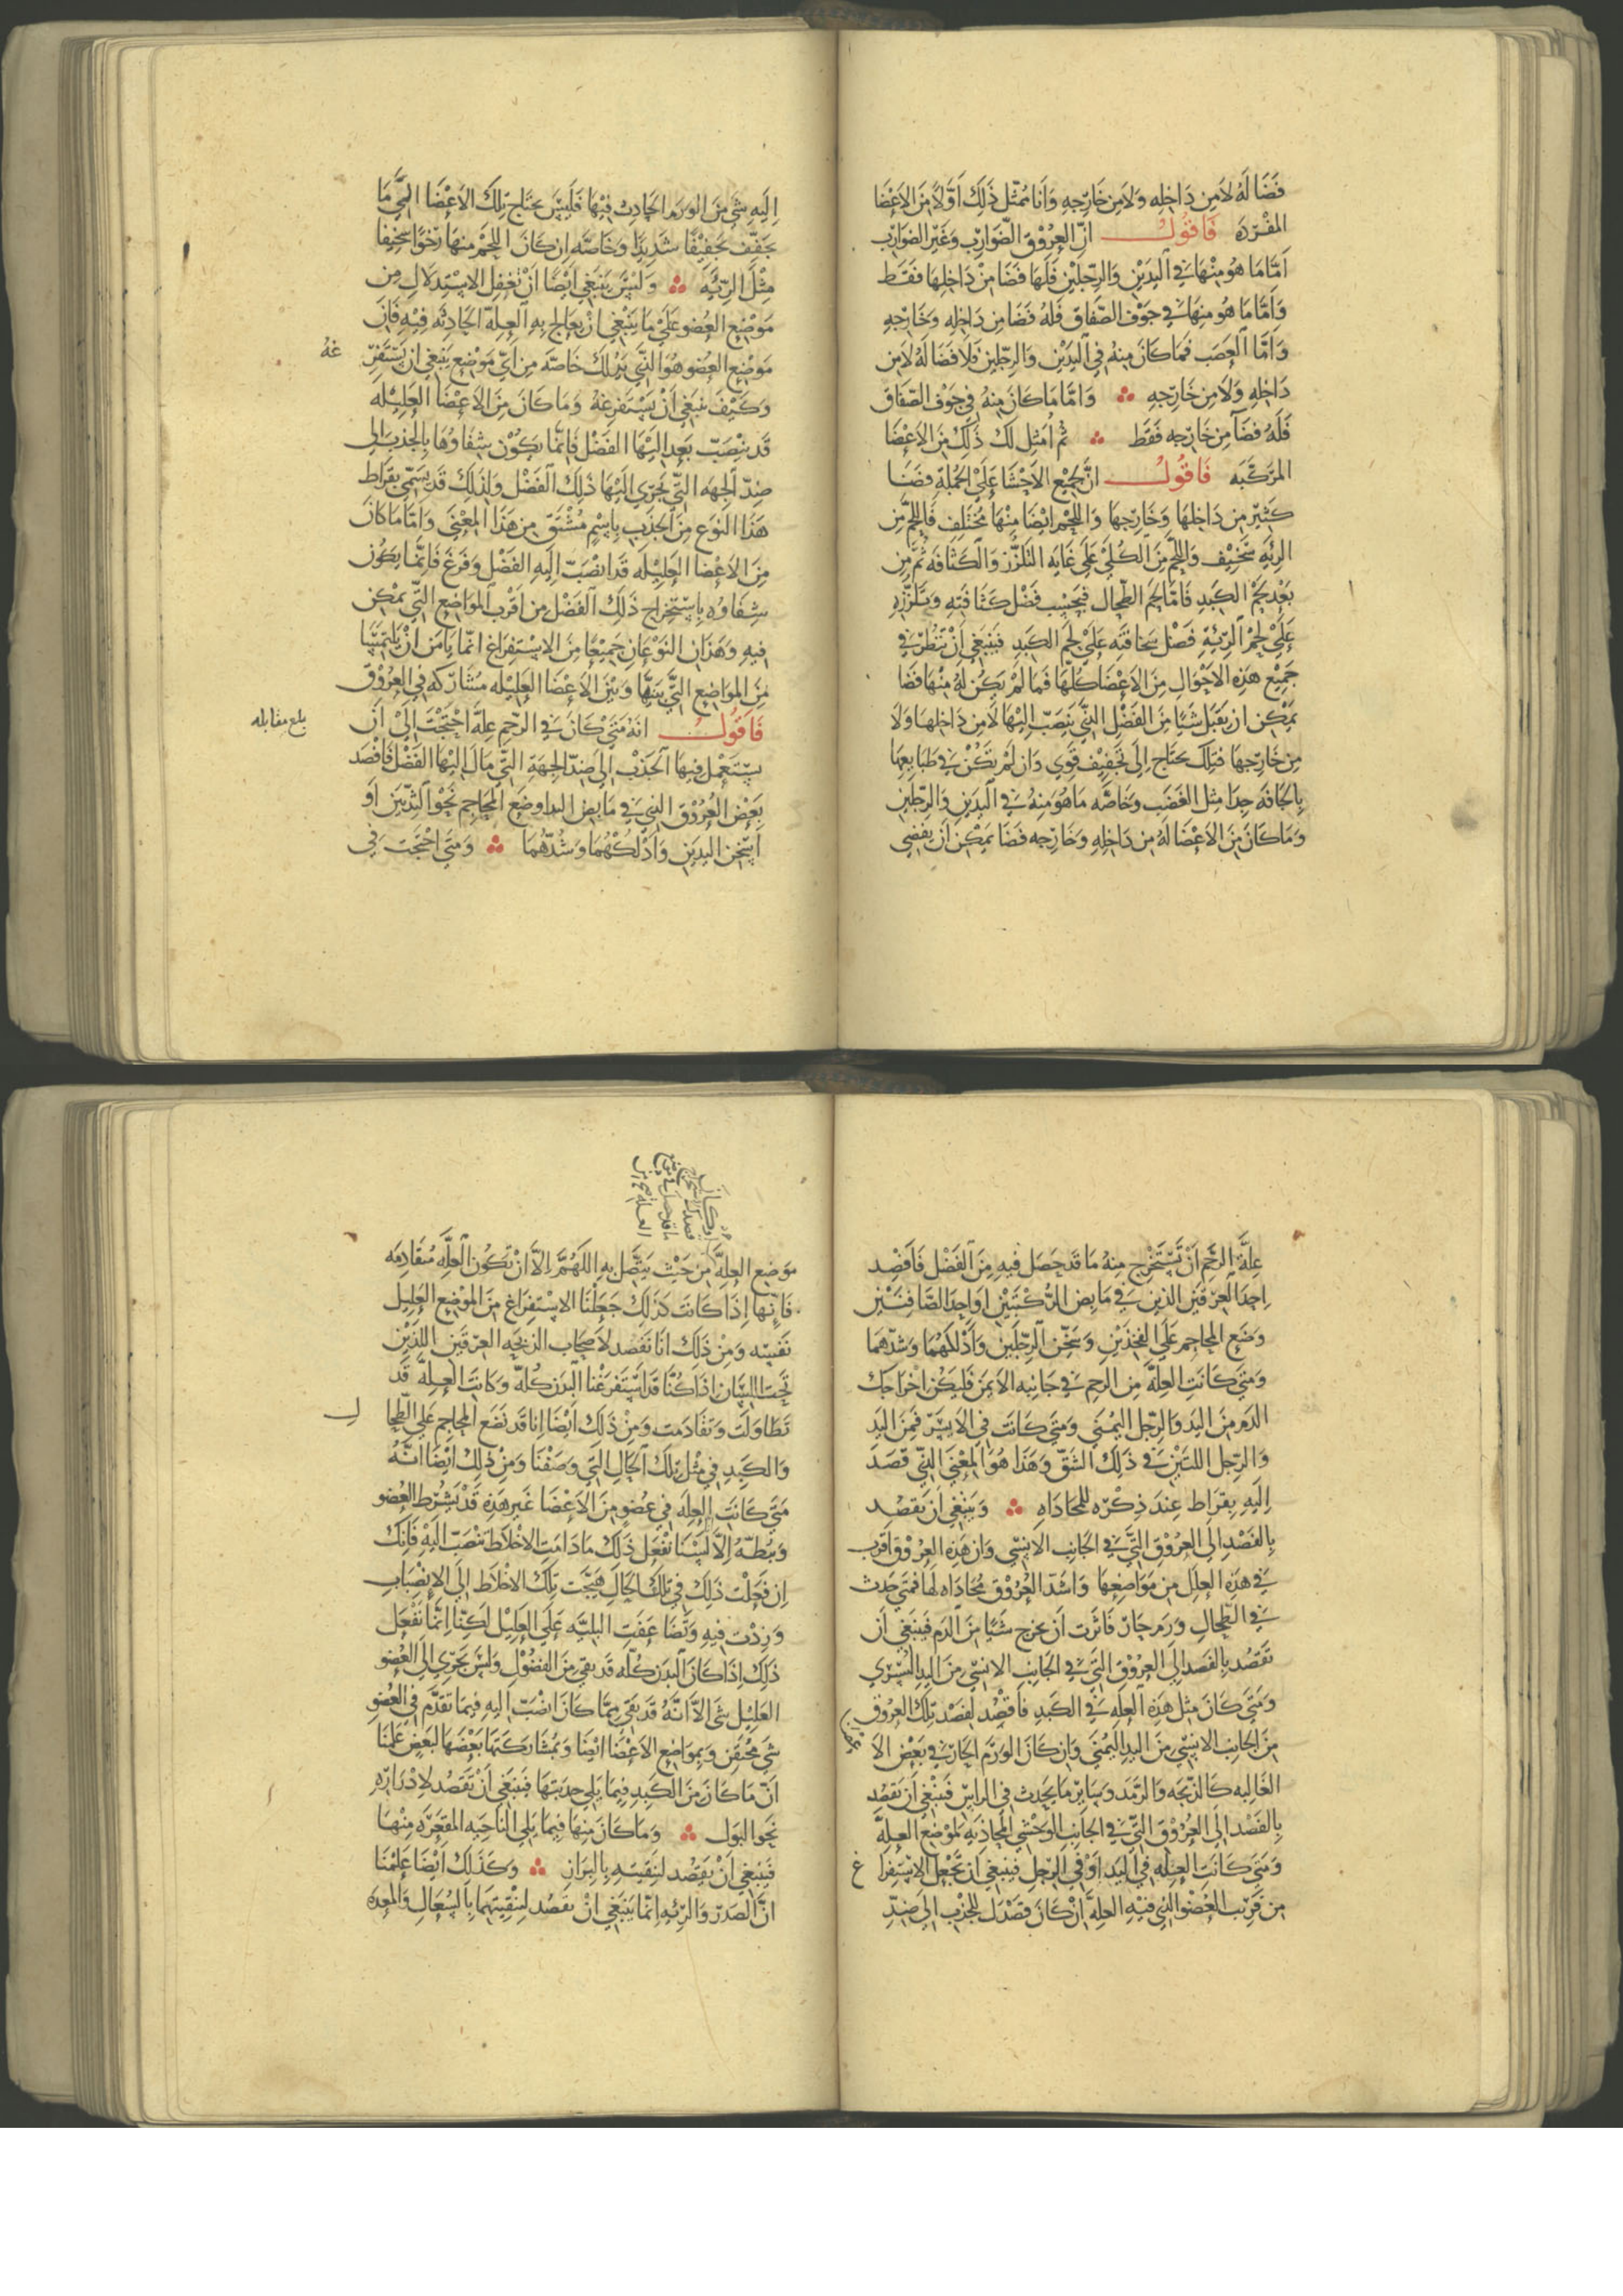 فضا له لا من داخله ولا من خارجه وانا ممثل ذلك اولا من الاعضا
المفرده فاقول ان العروق الضوارب وغير الضوارب
اما ما هو منها في اليدين والرجلين فلها فضا من داخلها فقط
واما ما هو منها في جوف الصفاق فله فضا من داخله وخارجه
واما العصب فما كان منه في اليدين والرجلين فلا فضا له لا من
داخله ولا من خارجه واما ما كان منه في جوف الصفاق
فله فضا من خارجه فقط ثم امثل لك ذلك من الاعضا
المركبه فاقول ان جميع الاحشا على الجمله فضا
كثير من داخلها وخارجها واللحم ايضا منها مختلف فاللحم من
الريه سخيف واللحم من الكلى على غايه التلزز والكثافه ثم من
بعد لحم الكبد فاما لحم الطحال فبحسب فضل كثافته وتلززه
على لحم الريه فضل سخافته على لحم الكبد فينبغي ان تنظر في
جميع هذه الاحوال من الاعضا كلها فما لم يكن له منها فضا
يمكن ان يقبل شيا من الفضل الذي ينصب اليها لا من داخلها ولا
من خارجها فتلك يحتاج الى تجفيف قوي وان لم تكن في طبايعها
بالجافه جدا مثل العصب وخاصه ما هو منه في اليدين والرجلين
وما كان من الاعضا له من داخله وخارجه فضا يمكن ان يفضي
اليه شي من الورم الحادث فيها فليس يحتاج تلك الاعضا الى ما
يجفف تجفيفا شديدا وخاصه ان كان اللحم منها رخوا سخيفا
مثل الريه وليس ينبغي ايضا ان تغفل الاستدلال من
موضع العضو على ما ينبغي ان يعالج به العله الحادثه فيه فان
موضع العضو هو الذي يدلك خاصه من اي موضع ينبغي ان يستفر
غه
وكيف ينبغي ان يستفرغه وما كان من الاعضا العليله
قد ينصب بعد اليها الفضل فانما يكون شفاوها بالجذب الى
ضد الجهه التي يجري اليها ذلك الفضل ولذلك قد يسمي بقراط
هذا النوع من الجذب باسم مشتق من هذا المعنى واما ما كان
من الاعضا العليله قد انصب اليه الفضل وفرغ فانما يكون
شفاوه باستخراج ذلك الفضل من اقرب المواضع التي يمكن
فيه وهذان النوعان جميعا من الاستفراغ انما يامن ان يلتمسا
من المواضع التي بينها وبين الاعضا العليله مشاركه في العروق
فاقول انه متى كان في الرحم عله احتجت الى ان
بلغ مقابله
يستعمل فيها الجذب الى ضد الجهه التي مال اليها الفضل فافصد
بعض العروق التي في مابض اليد او ضع المحاجم نحو الثديين او
اسخن اليدين وادلكهما وشدهما ومتى احتجت في
علة الرحم ان تستخرج منه ما قد حصل فيه من الفضل فافصد
احد العرقين الذين في مابض الركبتين او احد الصافنين
وضع المحاجم على الفخذين وسخن الرجلين وادلكهما وشدهما
ومتى كانت العلة من الرحم في جانبه الايمن فليكن اخراجك
الدم من اليد والرجل اليمنى ومتى كانت في الايسر فمن اليد
والرجل اللتين في ذلك الشق وهذا هو المعنى الذي قصد
اليه بقراط عند ذكره للمحاداه وينبغي ان يقصد
بالفصد الى العروق التي في الجانب الانسي وان هذه العروق اقرب
في هذه العلل من مواضعها واشد العروق محاداه لها فمتى حدث
في الطحال ورم حار فاثرت ان يخرج شيا من الدم فينبغي ان
تقصد بالفصد الى العروق التي في الجانب الانسي من اليد اليسرى
ومتى كان مثل هذه العله في الكبد فاقصد لفصد تلك العروق
من الجانب الانسي من اليد اليمنى وان كان الورم الحار في بعض الا
الغاليه كالذبحه والرمد وساير ما يحدث في الراس فينبغي ان يقصد
بالفصد الى العروق التي في الجانب الوحشي المحاذيه لموضع العلة
ومتى كانت العله في اليد او في الرجل فينبغي ان تجعل الاستفرا
غ
من قرب العضو الذي فيه العله ان كان قصدك للجذب الى ضد
او كان
قصدك استخراج
ما قد حصل في موضع
العله
موضع العلة من حيث يتصل به اللهم الا ان تكون العله متقادمه
فانها اذا كانت كذلك جعلنا الاستفراغ من الموضع العليل
نفسه ومن ذلك انا نفصد لاصحاب الذبحه العرقين اللذين
تحت اللسان اذا كنا قد استفرغنا البدن كله وكانت العله قد
تطاولت وتقادمت ومن ذلك ايضا انا قد نضع المحاجم على الطحا
ل
والكبد في مثل تلك الحال التي وصفنا ومن ذلك ايضا انه
متى كانت العله في عضو من الاعضا غير هذه قد نشرط العضو
ونبطه الا لسنا نفعل ذلك ما دامت الاخلاط تنصب اليه فانك
ان فعلت ذلك في تلك الحال هيجت تلك الاخلاط الى الانصباب
وزدت فيه وتضاعفت البليه على العليل لكنا انما نفعل
ذلك اذا كان البدن كله قد نقي من الفضول وليس يجري الى العضو
العليل شي الا انه قد بقي مما كان انصب اليه فيما تقدم في العضو
شي محتقن وبمواضع الاعضا ايضا وبمشاركتها بعضها لبعض علمنا
ان ما كان من الكبد فيما يلي حدبتها فينبغي ان تقصد لادراره
نحو البول وما كان منها فيما يلي الناحيه المقعره منها
فينبغي ان يقصد لتنقيته بالبراز وكذلك ايضا علمنا
ان الصدر والريه انما ينبغي ان نقصد لتنقيتهما بالسعال والمعده